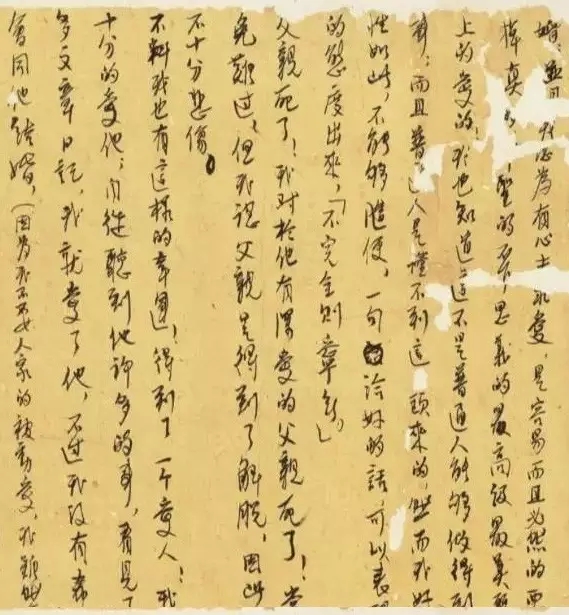 我以為有心去求愛,是容易而且必然的
真的,聖的,不可思議的最高級最美
上的愛的!我也知道這不是普通人能夠做得到
而且普人是懂不到這一頭來的,然而我好
性如此,不能夠隨便,一句恰好的話,可以表
的態度出來,「不完全則寧無」
父親死了!我對於他有深愛的父親死了!當
免難過;但我認父親是得到了解脫,因此
不十分悲傷。
不料我也有這樣的幸運,得到了一个愛人!我
十分的愛他;自從聽到他許多的事,看見了
多文章日記,我就愛了他,不過我沒有希
會同他結婚,(因為我不要人家的被動愛,我雖然